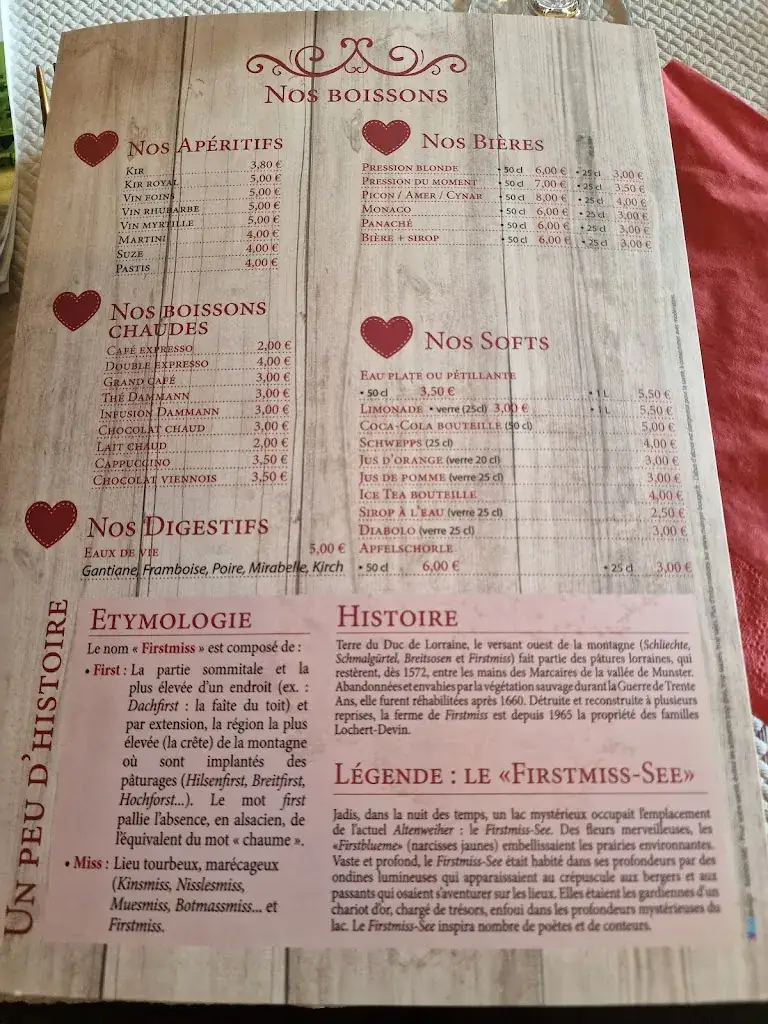 Nos boissons
Nos Apéritifs
Kir 3,80 €
Kir royal 5,00 €
Vin foins 5,00 €
Vin rhubarbe 5,00 €
Vin myrtille 5,00 €
Martini 4,00 €
Suze 4,00 €
Pastis 4,00 €
Nos Bières
Pression blonde • 50 cl 6,00 € • 25 cl 3,00 €
Pression du moment • 50 cl 7,00 € • 25 cl 3,50 €
Picon / Amer / Cynar • 50 cl 8,00 € • 25 cl 4,00 €
Monaco • 50 cl 6,00 € • 25 cl 3,00 €
Panaché • 50 cl 6,00 € • 25 cl 3,00 €
Bière + sirop • 50 cl 6,00 € • 25 cl 3,00 €
Nos boissons
chaudes
Café expresso 2,00 €
Double expresso 4,00 €
Grand café 3,00 €
Thé Dammann 3,00 €
Infusion Dammann 3,00 €
Chocolat chaud 3,00 €
Lait chaud 2,00 €
Cappuccino 3,50 €
Chocolat viennois 3,50 €
Nos Softs
Eau plate ou pétillante
• 50 cl 3,50 € • 1 L 5,50 €
Limonade • verre (25cl) 3,00 € • 1 L 5,50 €
Coca-Cola bouteille (50 cl) 5,00 €
Schwepps (25 cl) 4,00 €
Jus d'orange (verre 20 cl) 3,00 €
Jus de pomme (verre 25 cl) 3,00 €
Ice Tea bouteille 4,00 €
Sirop à l'eau (verre 25 cl) 2,50 €
Diabolo (verre 25 cl) 3,00 €
Apfelschorle
• 50 cl 6,00 € • 25 cl 3,00 €
Nos Digestifs
Eaux de vie 5,00 €
Gantiane, Framboise, Poire, Mirabelle, Kirch
Un peu d'histoire
Etymologie
Le nom « Firstmiss » est composé de :
• First : La partie sommitale et la
plus élevée d'un endroit (ex. :
Dachfirst : la faîte du toit) et
par extension, la région la plus
élevée (la crête) de la montagne
où sont implantés des
pâturages (Hilsenfirst, Breitfirst,
Hochforst...). Le mot first
pallie l'absence, en alsacien, de
l'équivalent du mot « chaume ».
• Miss : Lieu tourbeux, marécageux
(Kinsmiss, Nisslesmiss,
Muesmiss, Botmassmiss... et
Firstmiss.
Histoire
Terre du Duc de Lorraine, le versant ouest de la montagne (Schliechte,
Schmalgürtel, Breitsosen et Firstmiss) fait partie des pâtures lorraines, qui
restèrent, dès 1572, entre les mains des Marcaires de la vallée de Munster.
Abandonnées et envahies par la végétation sauvage durant la Guerre de Trente
Ans, elle furent réhabilitées après 1660. Détruite et reconstruite à plusieurs
reprises, la ferme de Firstmiss est depuis 1965 la propriété des familles
Lochert-Devin.
Légende : le «Firstmiss-See»
Jadis, dans la nuit des temps, un lac mystérieux occupait l'emplacement
de l'actuel Altenweiher : le Firstmiss-See. Des fleurs merveilleuses, les
«Firstblueme» (narcisses jaunes) embellissaient les prairies environnantes.
Vaste et profond, le Firstmiss-See était habité dans ses profondeurs par des
ondines lumineuses qui apparaissaient au crépuscule aux bergers et aux
passants qui osaient s'aventurer sur les lieux. Elles étaient les gardiennes d'un
chariot d'or, chargé de trésors, enfoui dans les profondeurs mystérieuses du
lac. Le Firstmiss-See inspira nombre de poètes et de conteurs.